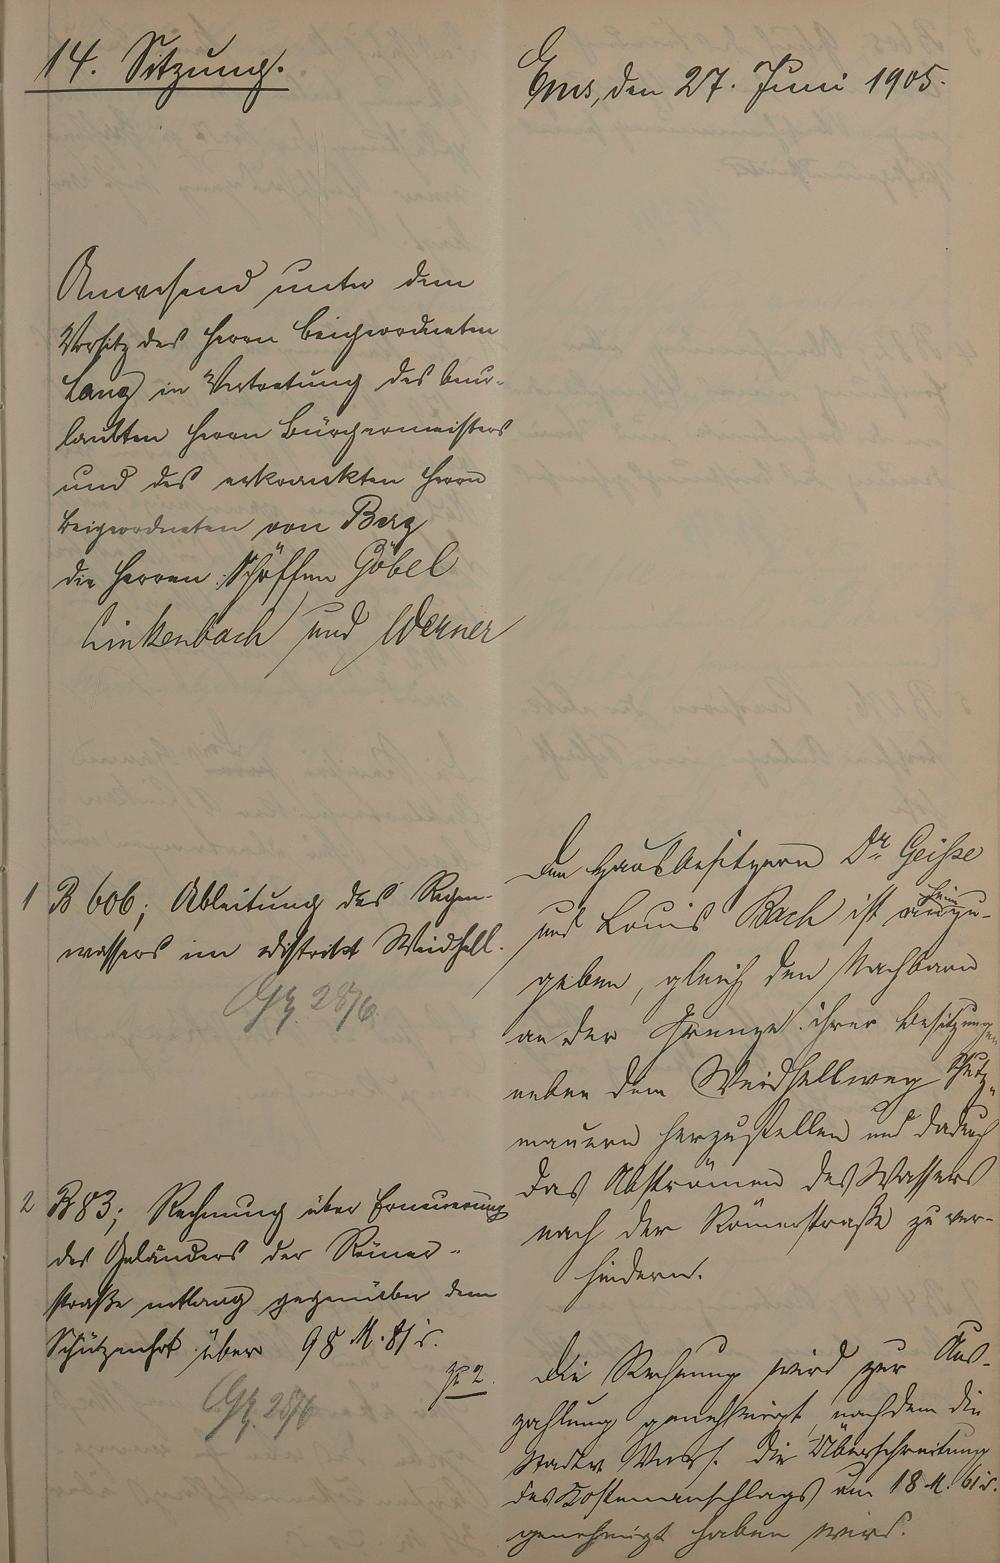 14. Sitzung.
Ems, den 27. Juni 1905.
Anwesend unter dem
Vorsitz des Herrn Beigeordneten
Lang in Vertretung des beur-
laubten Herrn Bürgermeisters
und des erkrankten Herrn
Beigeordneten von Berg
die Herren Schöffen Göbel
Linkenbach und Werner
1 B 606; Ableitung des Regen-
wassers im Distrikt Weidhell.
28/6
Den Hausbesitzern Dr. Geisse
und Louis Bach ist
geben, gleich den Nachbarn
an der Grenze ihrer Besitzungen
neben dem Weidhellweg Schutz-
mauern herzustellen und dadurch
das Abströmen des Wassers
nach der Römerstraße zu ver-
hindern.
2 B 83; Rechnung über Erneuerung
des Geländers der Römer-
straße entlang gegenüber dem
Schützenhof über 98 M. 81
28/6
Die Rechnung wird zur Aus-
zahlung genehmigt, nachdem die
Stadtv. Vers. die Überschreitung
des Kostenanschlags um 18 M. 61
genehmigt haben wird.